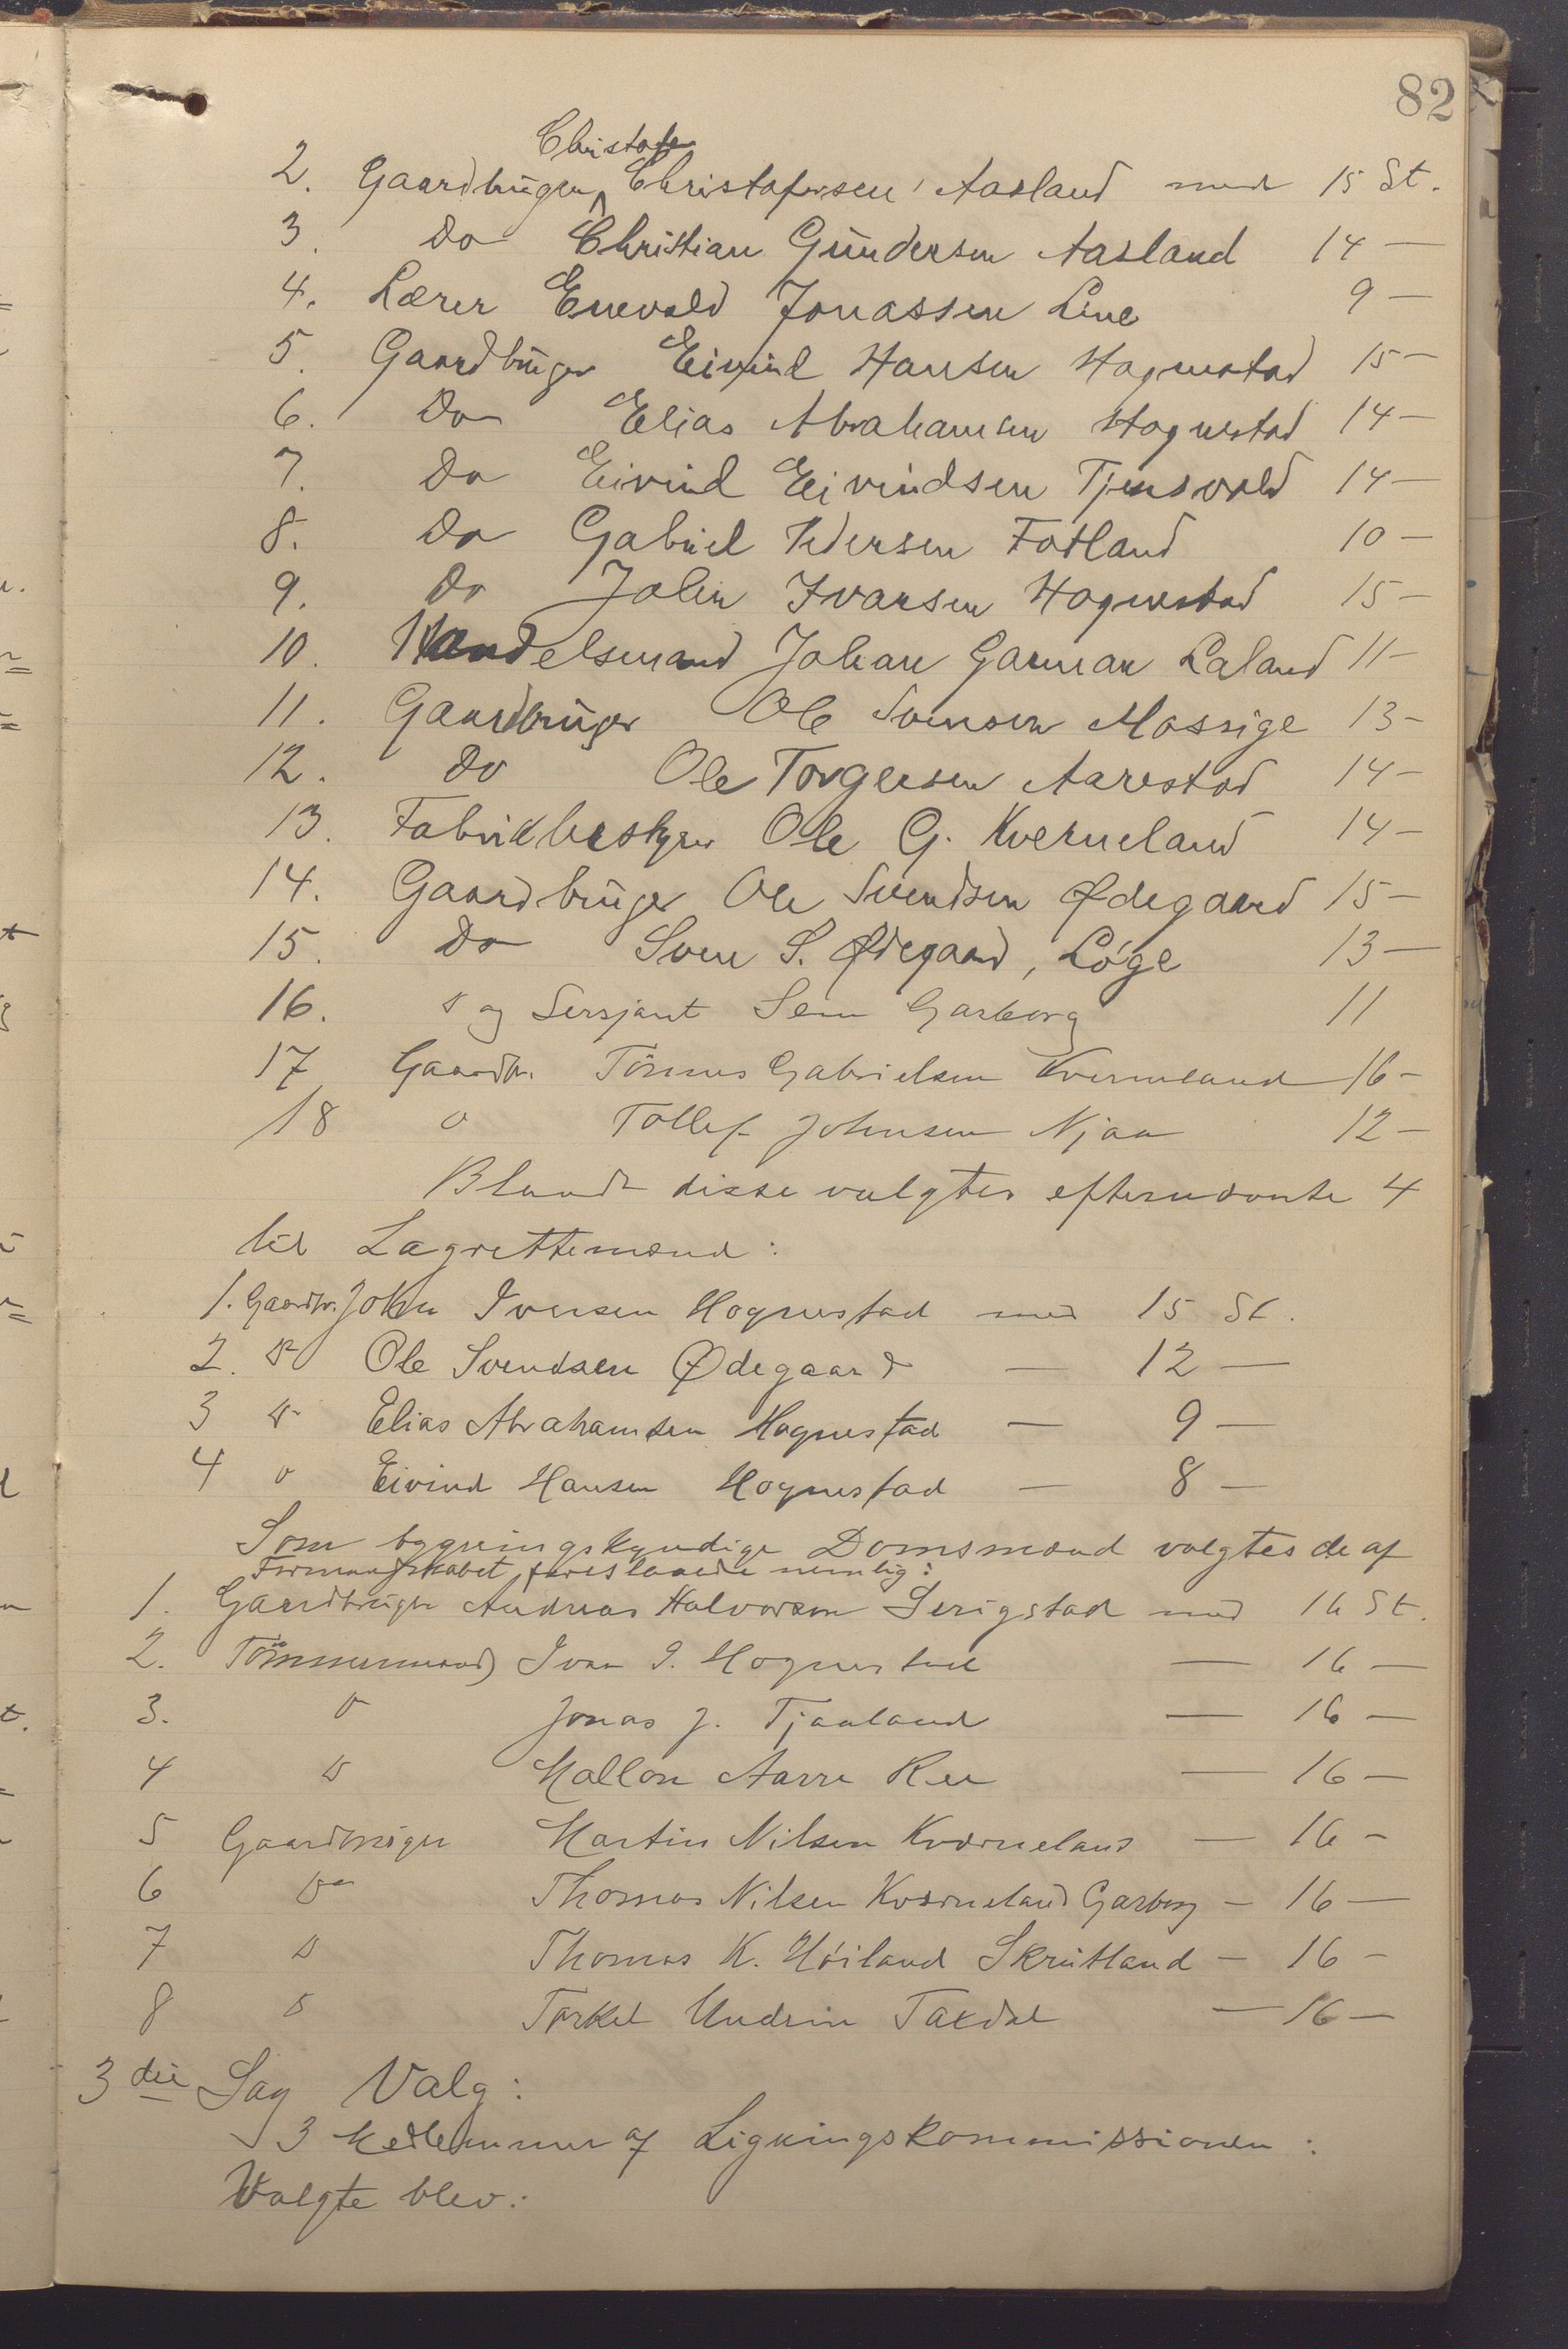 82
Christofer
2. Gaardbruger Christofersen Aasland med 15 St.
3. Do Christian Gundersen Aasland 14 —
4. Lærer Enevald Jonassen Line 9 —
5. Gaardbruger Eivind Hansen Hognestad 15 —
6. Do Elias Abrahamsen Hognestad 14 —
7. Do Eivind Eivindsen Tjensvold 14 —
8. Do Gabriel Pedersen Fotland 10 —
9. Do John Ivarsen Hognestad 15 —
10. Handelsmand Johan Garman Laland 11 —
11. Gaardbruger Ole Svensen Mossige 13 -
12. Do Ole Torgersen Aarestad 14 -
13. Fabrikbestyrer Ole G. Kverneland 14 -
14. Gaardbruger Ole Svendsen Ødegaard 15 -
15. Do Sven S. Ødegaard, Løge 13 —
16. D og Sersjant Sem Garborg 11
17 Gaardbr. Tönnes Gabrielsen Kverneland 16 -
18 D Tollef Johnsen Njaa 12 —
Blandt disse valgtes efternævnte 4
til Lagrettemænd:
1. Gaardbr. John Iversen Hognestad med 15 St.
2. D Ole Svendsen Ødegaard — 12 —
3 D Elias Abrahamsen Hognestad — 9 —
4 D Eivind Hansen Hognestad — 8 —
Som bygningskyndige Domsmænd valgtes de af
Formandskabet foreslaaede nemlig:
1. Gaardbruger Andreas Halvorsen Serigstad med 16 St.
2. Tömmermand Ivar I. Hognestad — 16 —
3. D Jonas J. Tjaaland — 16 —
4 D Mallon Aarre Ree — 16 —
5 Gaardbruger Martin Nilsen Kværneland — 16 -
6 Do Thomas Nilsen Kværneland Garborg — 16 —
7 D Thomas K. Höiland Skrutland — 16 -
8 D Torkel Undrim Taxdal — 16 —
3die Sag Valg:
3 Medlemmer af Ligningskommissionen:
Valgte blev: